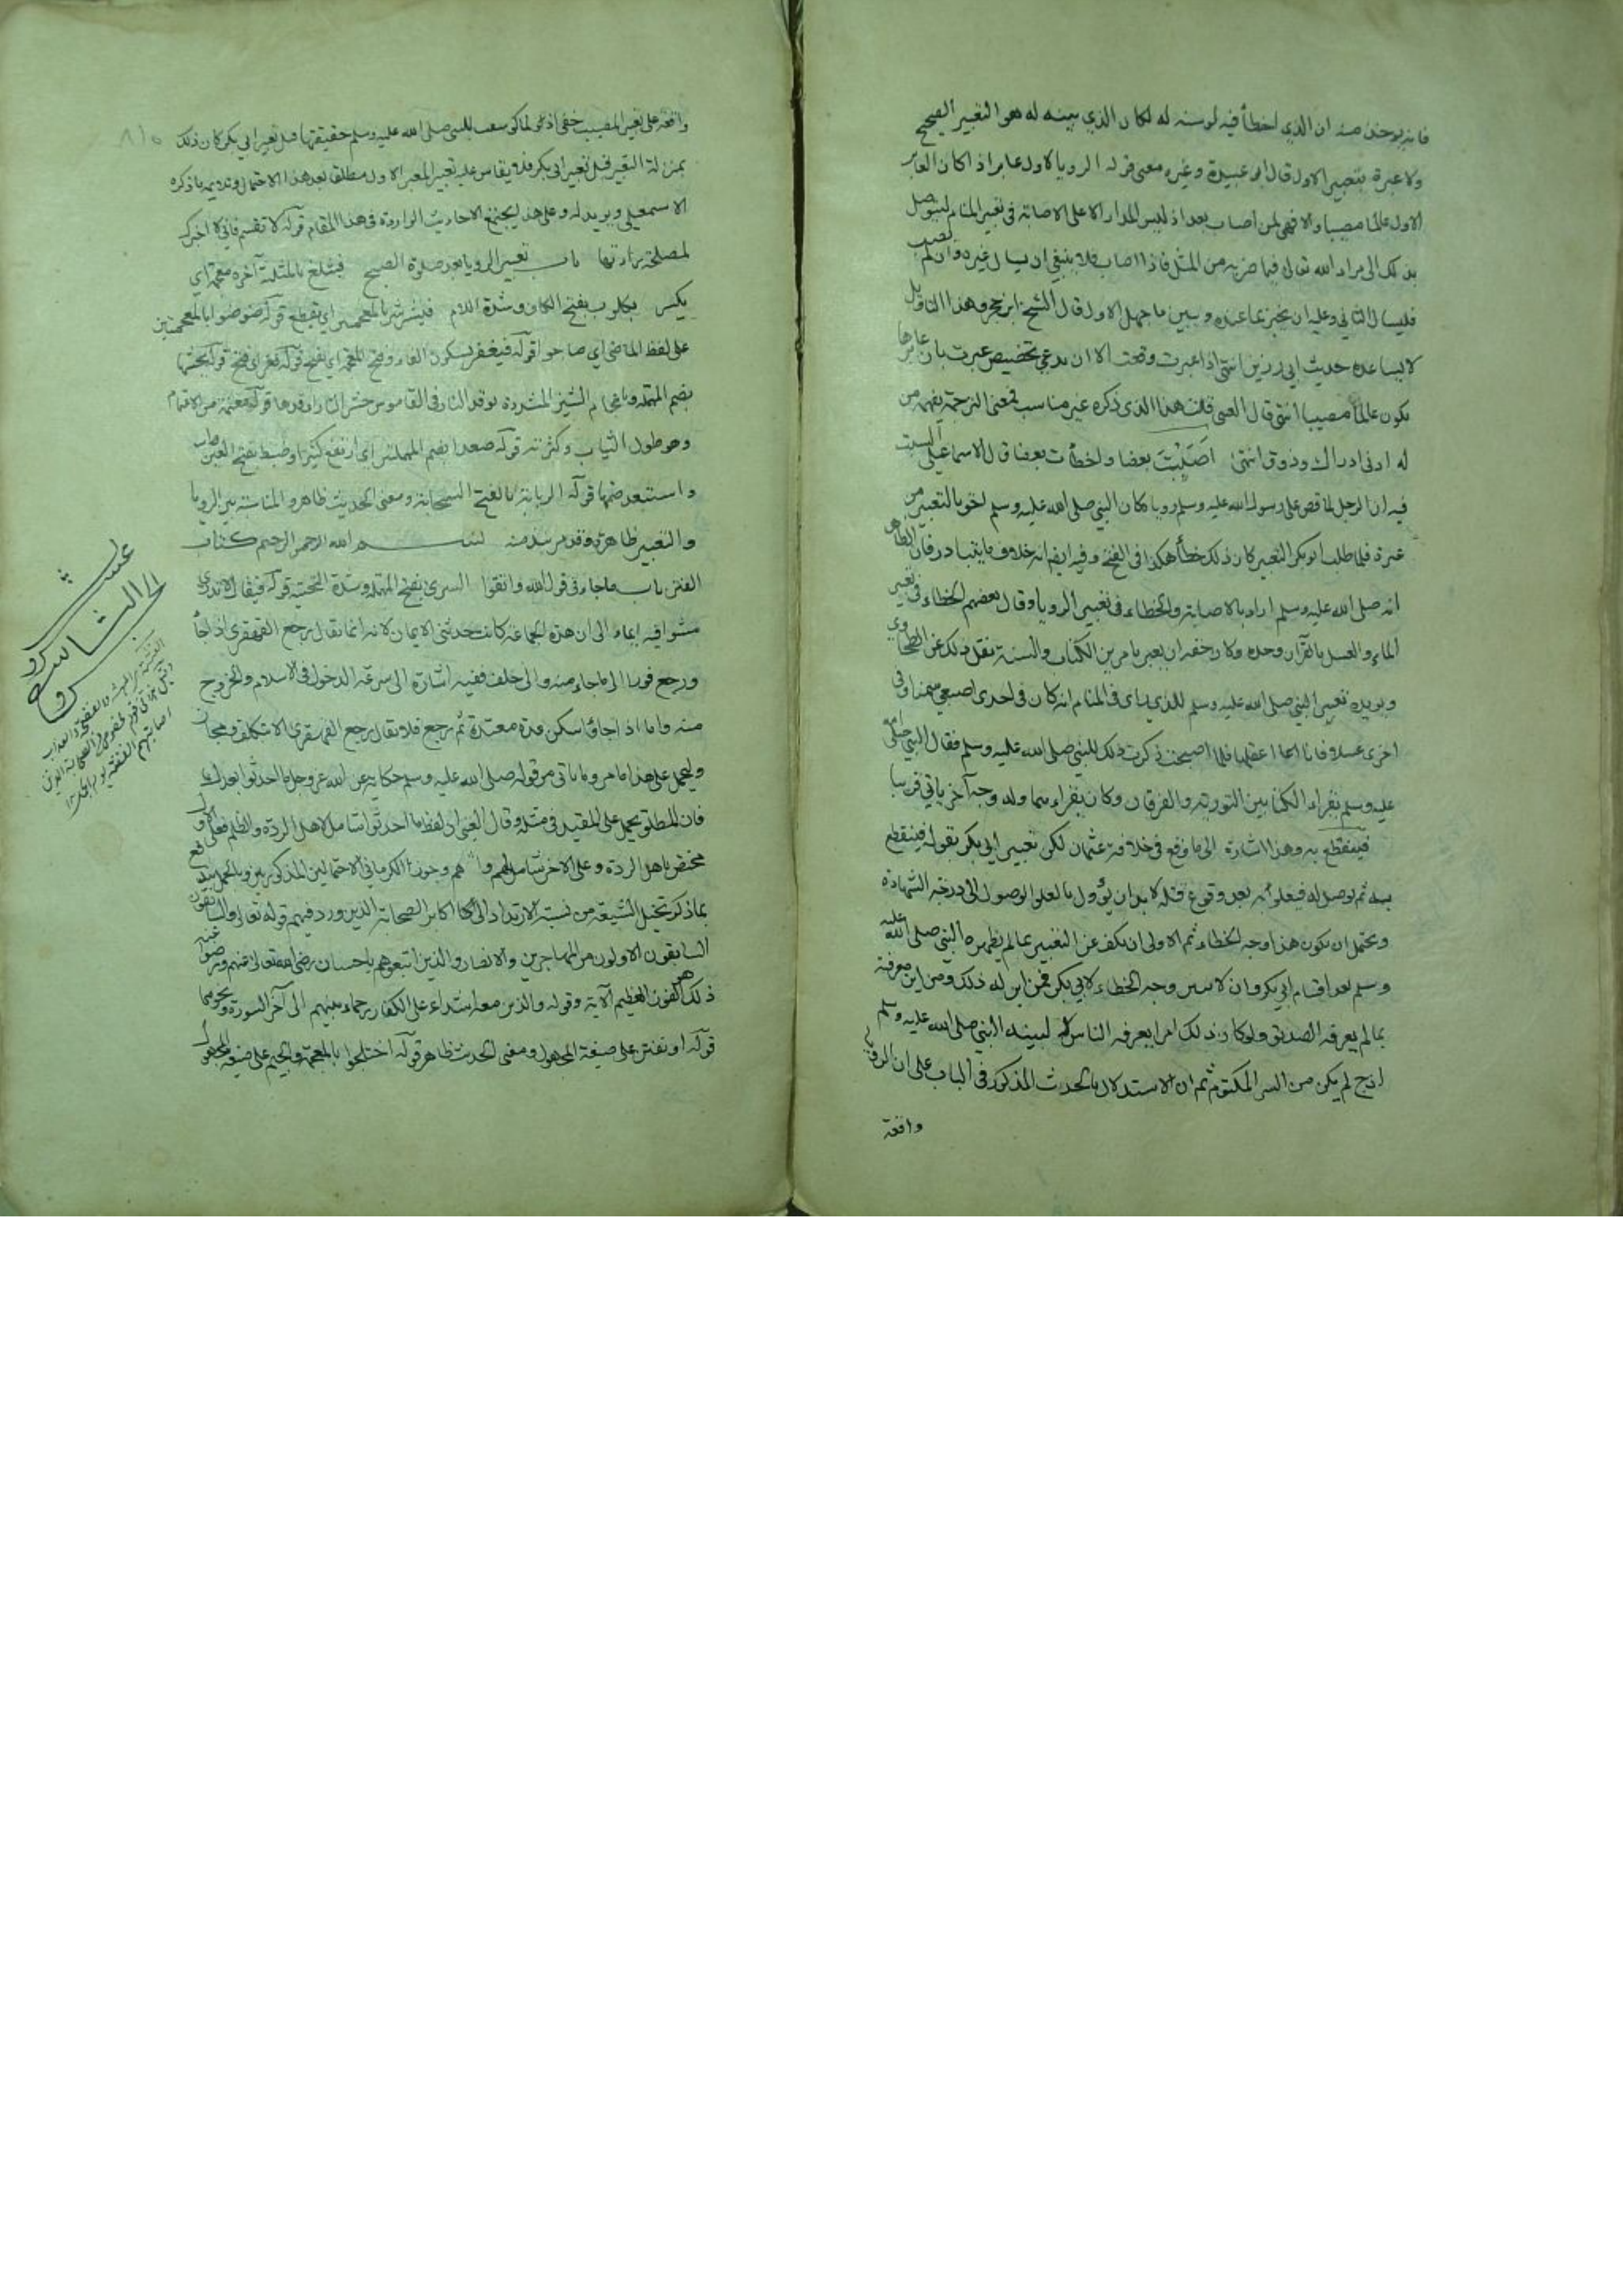 فانه يوخذ منه ان الذي اخطأ فيه لو بينه له لكان الذي بينه له هو التعبير الصحيح
ولا عبرة بتعبير الاول قال ابو عبيدة وغيره معنى قوله الرويا لاول عابر اذا كان العابر
الاول عالما مصيبا والا فهي لمن اصاب بعده اذ ليس المدار الا على الاصابة في تعبير المنام ليتوصل
بذلك الى مراد الله تعالى فيما ضربه من المثل فاذا اصاب فلا ينبغي ان يسال غيره وان لم يصب
فليسال الثاني وعليه ان يخبر بما عنده ويبين ما جهل الاول قال الشيخ ابن حجر وهذا التاويل
لا يساعده حديث ابي رزين ان الرويا اذا عبرت وقعت الا ان يدعي تخصيص عبرت بان عابرها
يكون عالما مصيبا انتهى قال العبد قلت هذا الذي ذكره غير مناسب لمعنى الترجمة يفهمه من
له ادنى ادراك وذوق انتهى اصبت بعضا واخطأت بعضا قال الاسماعيلي السبب
فيه ان الرجل لما قص على رسول الله عليه وسلم رويا كان النبي صلى الله عليه وسلم احق بالتعبير من
غيره فلما طلب ابو بكر التعبير كان ذلك خطأ هكذا في الفتح وفيه ايضا انه خلاف ما يتبادر فان الظاهر
انه صلى الله عليه وسلم اراد بالاصابة والخطاء في تعبير الرويا وقال بعضهم الخطاء في تعبير
الماء والعسل بالقرآن وحده وكان حقه ان يعبر بامرين الكتاب والسنة نقل ذلك عن الطحاوي
ويويده تعبير النبي صلى الله عليه وسلم للذي راى في المنام انه كان في احدى اصبعي سمنا وفي
اخرى عسلا فانا العقهما فلما اصبحت ذكرت ذلك للنبي صلى الله عليه وسلم فقال النبي صلى الله
عليه وسلم تقراء الكتابين التورية والفرقان وكان يقراءهما وله وجه آخر ياتي قريبا
فينقطع به وهذا اشارة الى ما وقع في خلافة عثمان لكن تعبير ابي بكر بقوله فينقطع
به ثم يوصل له فيعلو به بعد وقوع قتله لا بد ان يؤول بالعلو الوصول الى درجة الشهادة
ويحتمل ان يكون هذا وجه الخطاء ثم الاولى ان يكف عن التعبير بما لم يظهره النبي صلى الله عليه
وسلم بعد اقسام ابي بكر وان لا يبين وجه الخطاء لابي بكر فمن اين له ذلك ومن اين معرفة
ما لم يعرفه الصديق ولو كان ذلك امرا يعرفه الناس كله لبينه النبي صلى الله عليه وسلم
اذ لم يكن من السر المكتوم ثم ان الاستدلال بالحديث المذكور في الباب على ان الرويا
واقعة
واقعة على تعبير المصيب خفي اذ لو بين النبي صلى الله عليه وسلم حقيقتها قبل تعبير ابي بكر كان ذلك
بمنزلة التعبير قبل تعبير ابي بكر فلا يقاس عليه تعبير المعبر الاول مطلقا بعد هذا الاحتمال
الاسمعيلي ويويده له وعلى هذا يجتمع الاحاديث الواردة في هذا المقام قوله لا تقسم فاني لا اخبرك
لمصلحة باب تعبير الرويا بعد صلوة الصبح فيثلغ بالمثلثة آخره معجمة اي
يكسر بكلوب بفتح الكاف وشدة اللام فيشرشر بالمعجمتين اي يقطع قوله ضوضوا بالمعجمتين
على لفظ الماضي اي صاحوا قوله فيفغر بسكون الفاء وفتح المعجمة اي يفتح قوله فغر اي فتح قوله يحشها
بضم المهملة وبالشين المشددة يوقد النار في القاموس حش النار اوقدها قوله معتمة من الاعتمام
وهو طول النبات وكثرته قوله صعدا بضم المهملتين اي ارتفع كثيرا وضبط بفتح العين
واستبعد ضمها قوله الربابة بالفتح السحابة ومعنى الحديث ظاهر والمناسبة بين الرويا
والتعبير ظاهرة وقد مر نبذ منه بسم الله الرحمن الرحيم كتاب
الفتن باب ما جاء في قول الله واتقوا السري بفتح المهملة وشدة التحتية قوله فيقال لا تدري
مشوا فيه ايماء الى ان هذه الجماعة كانت حديثي الايمان لانه انما يقال رجع القهقرى اذا جاء
ورجع فورا الى ما جاء منه والى خلف ففيه اشارة الى سرعة الدخول في الاسلام والخروج
منه واما اذا جاء وسكن مدة معتدة ثم رجع فلا يقال رجع القهقرى الا بتكلف ومجاز
ويحمل على هذا ما مر وما ياتي من قوله صلى الله عليه وسلم حكاية عن الله عز وجل ما احدثوا بعدك
فان المطلق يحمل على المقيد في مثله وقال العيني ان لفظ ما احدثوا شامل لاهل الردة والظلم فعلى الاول
مختص باهل الردة وعلى الاخر شامل لهم وجوز الكرماني الاحتمالين المذكورين وبالجملة يندفع
بما ذكر تخيل الشيعة من نسبة الارتداد الى اكابر الصحابة الذين ورد فيهم قوله تعالى والسابقون
السابقون الاولون من المهاجرين والانصار والذين اتبعوهم باحسان رضي الله تعالى عنهم ورضوا عنه
ذلك هو الفوز العظيم الآية وقوله والذين معه اشداء على الكفار رحماء بينهم الى آخر السورة ونحوهما
قوله او نفتن على صيغة المجهول ومعنى الحديث ظاهر قوله اختلجوا بالمعجمة والجيم على صيغة المجهول